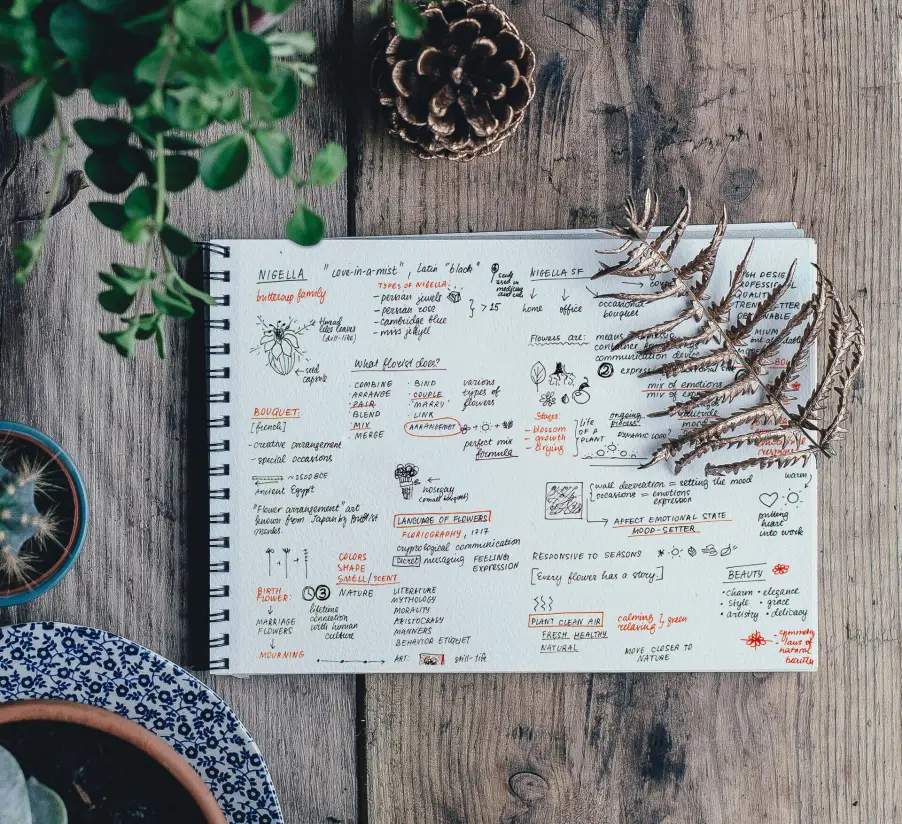 NIGELLA "Love-in-a-mist", Latin "black"
buttercup family
TYPES OF NIGELLA:
- persian jewels
- persian rose
- cambridge blue
- miss jekyll
> 15
seeds
used in
medicine
thread
like leaves
(dill-like)
seed
capsule
What florist does?
· COMBINE
· ARRANGE
· PAIR
· BLEND
· MIX
· MERGE
· BIND
· COUPLE
· "MARRY"
· LINK
ARRANGEMENT
various
types of
flowers
perfect mix
formula
BOUQUET:
[french]
- creative arrangement
- special occasions
~ 2500 BCE
Ancient Egypt
"Flower arrangement" art
known from Japan by Buddhist
monks.
nosegay
(small bouquet)
LANGUAGE OF FLOWERS
FLORIOGRAPHY, 1717
cryptological communication
secret messaging FEELING
EXPRESSION
COLORS
SHAPE
SMELL/SCENT
BIRTH
FLOWER:
↓
MARRIAGE
FLOWERS
↓
MOURNING
③
lifetime
connection
with human
culture
NATURE
LITERATURE
MYTHOLOGY
MORALITY
ARISTOCRASY
MANNERS
BEHAVIOR ETIQUET
ART: still-life
NIGELLA SF
home office
occasional
bouquet
Flowers are:
communication
②
mix of emotions
Stages:
- blossom
- growth
- drying
life
OF A
PLANT
ongoing
process
DYNAMIC
wall decoration = setting the mood
occasions = emotions
expression
AFFECT EMOTIONAL STATE
MOOD-SETTER
putting
heart
into work
RESPONSIVE TO SEASONS
[Every flower has a story]
PLANT CLEAN AIR
FRESH HEALTHY
NATURAL
calming
relaxing
green
MOVE CLOSER TO
NATURE
BEAUTY
· charm · elegance
· style · grace
· artistry · delicacy
- symmetry
laws of
natural
beauty